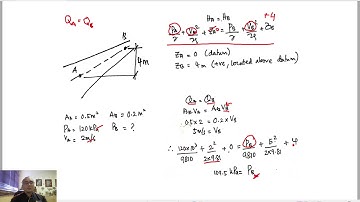 Q_A = Q_B
B
A
4m
A_A = 0.5m² A_B = 0.2m²
P_A = 120kPa P_B = ?
V_A = 2m/s
H_A = H_B
P_A/γ + V_A²/2g + Z_A = P_B/γ + V_B²/2g + Z_B
+4
Z_A = 0 (datum)
Z_B = 4m (+ve, located above datum)
Q_A = Q_B
A_A V_A = A_B V_B
0.5 x 2 = 0.2 x V_B
5m/s = V_B
∴ 120x10³/9810 + 2²/2x9.81 + 0 = P_B/9810 + 5²/2x9.81 + 4